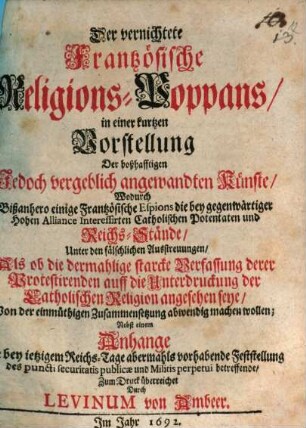 Der vernichtete
Frantzösische
Religions-Poppans/
in einer kurtzen
Vorstellung
Der boßhafftigen
Jedoch vergeblich angewandten Künste/
Wodurch
Bißanhero einige Frantzösische Espions die bey gegenwärtiger
Hohen Alliance Interessirten Catholischen Potentaten und
Reichs-Stände/
Unter den fälschlichen Ausstreuungen/
Als ob die dermahlige starcke Verfassung derer
Protestirenden auff die Unterdruckung der
Catholischen Religion angesehen seye/
Von der einmüthigen Zusammensetzung abwendig machen wollen;
Nebst einem
Anhange
bey ietzigem Reichs-Tage abermahls vorhabende Feststellung
des puncti securitatis publicæ und Militis perpetui betreffende/
Zum Druck überreichet
Durch
LEVINUM von Ambeer.
Im Jahr 1692.